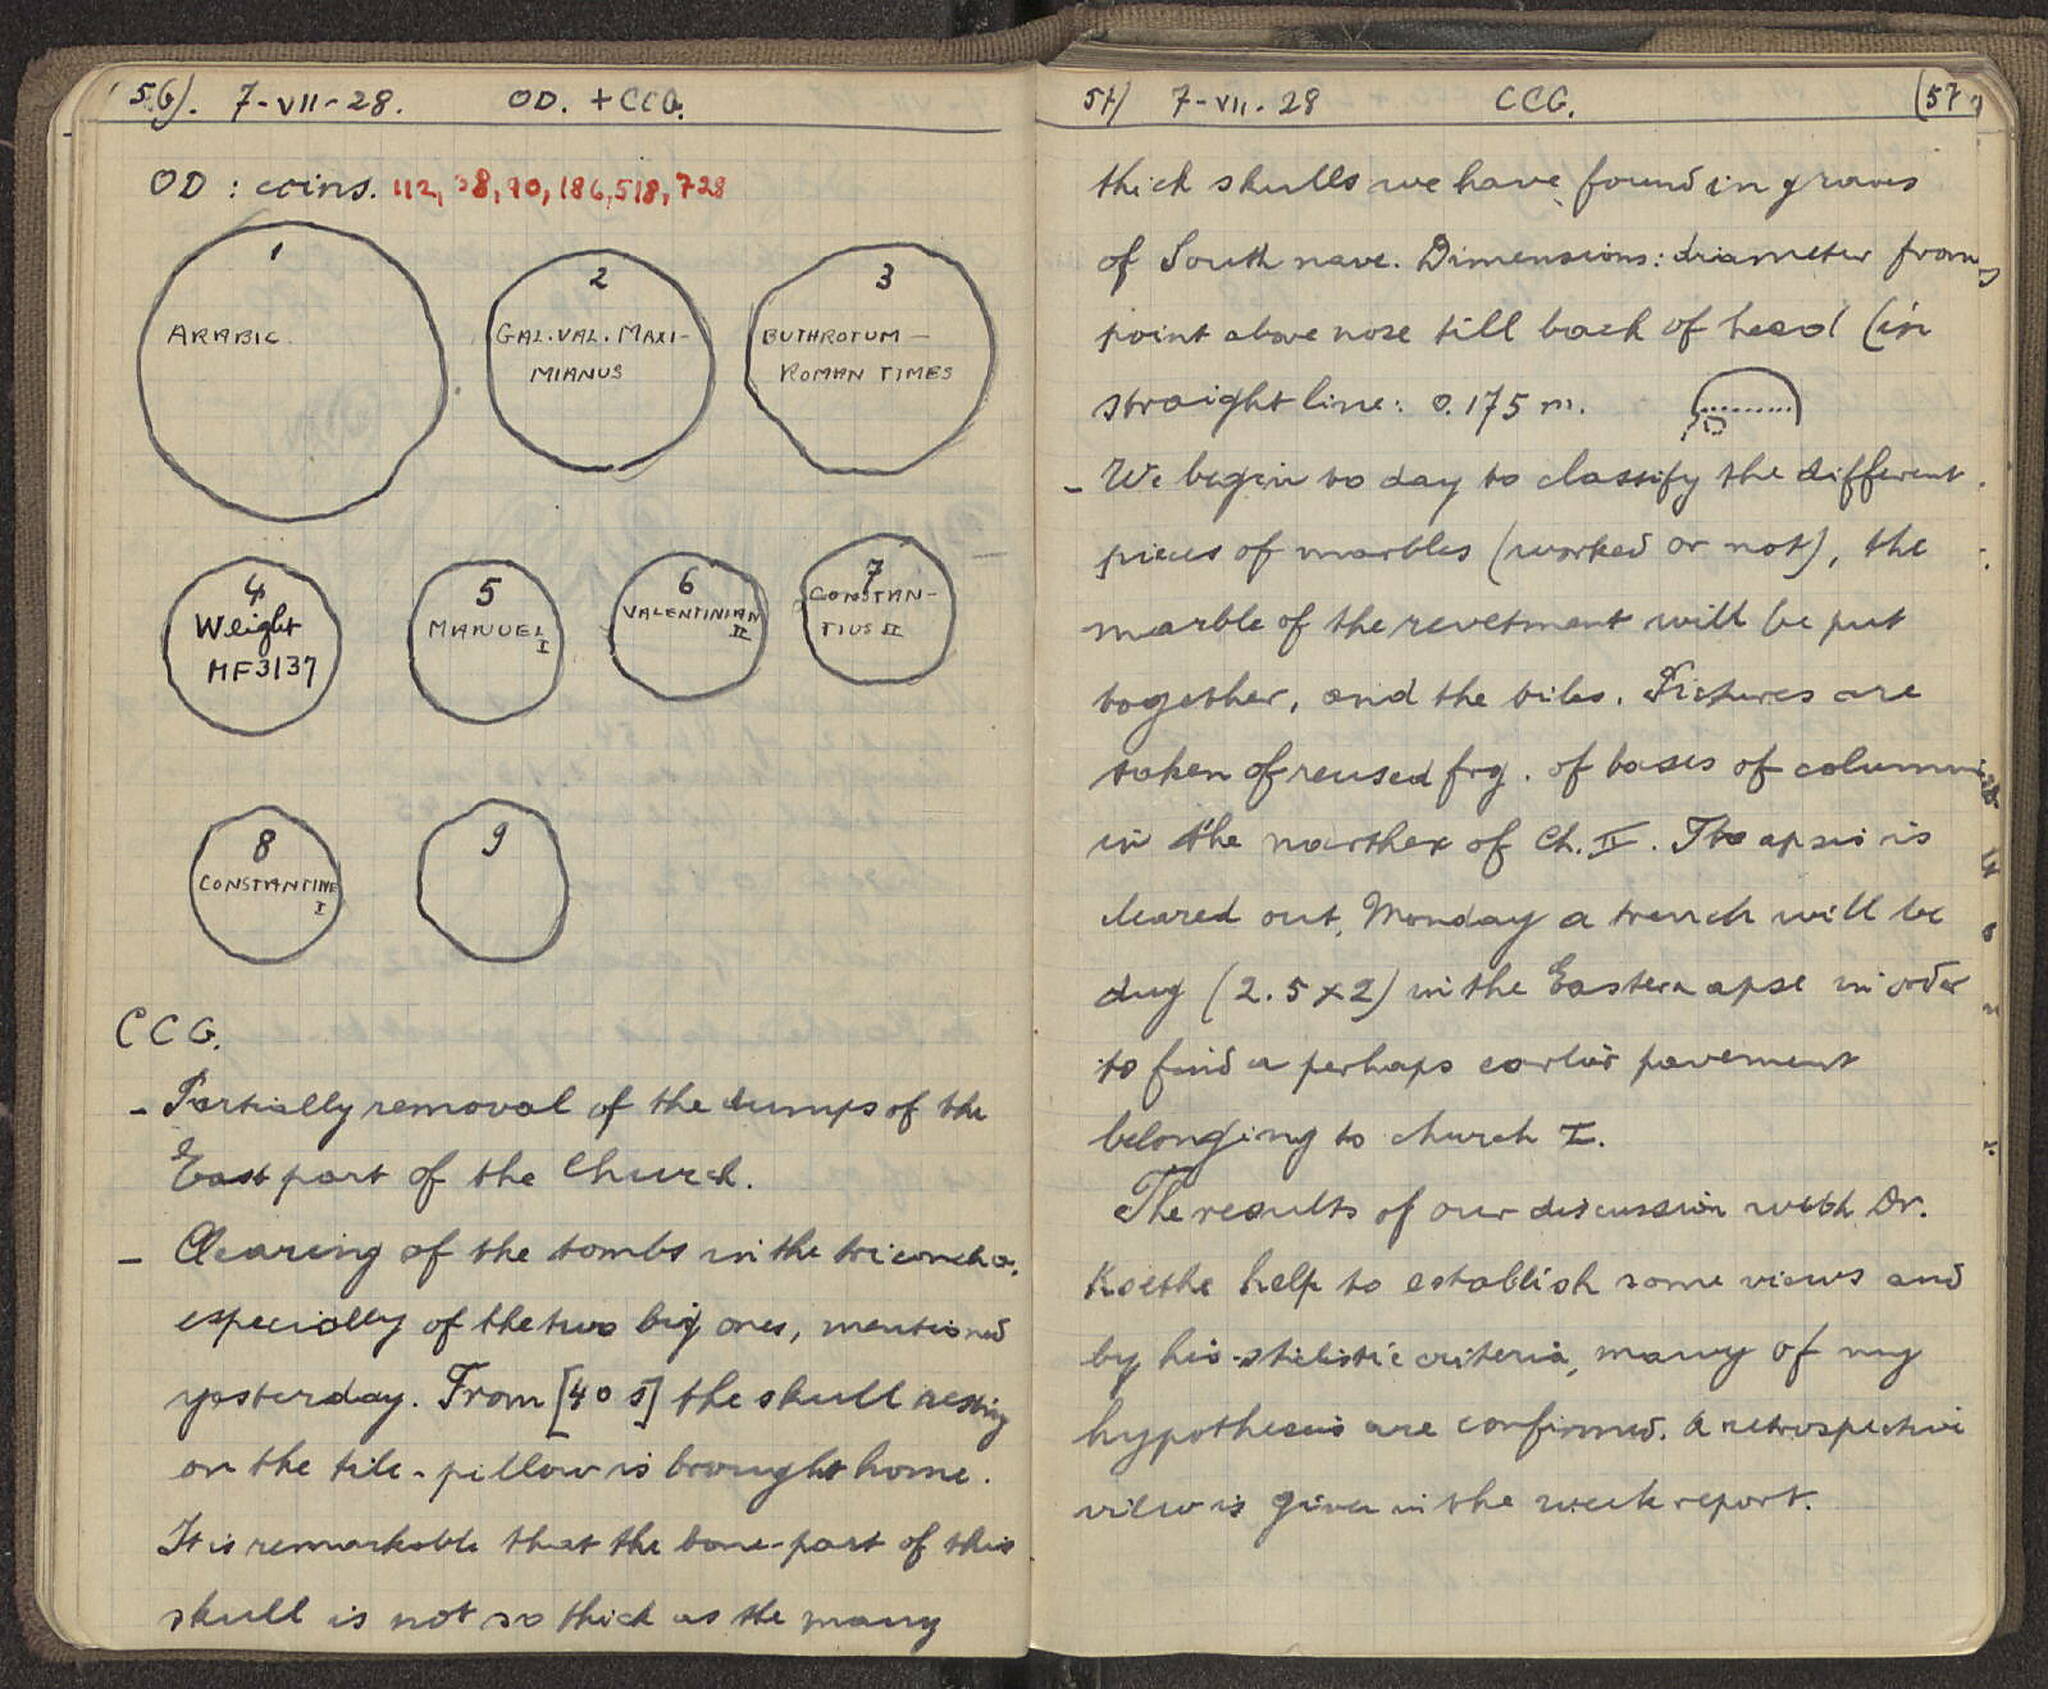 56). 7-VII-28. OD. + CCG.
OD : coins. 112, 38, 90, 186, 518, 728
1
ARABIC
2
GAL. VAL. MAXI-
MIANUS
3
BUTHROTUM —
ROMAN TIMES
4
Weight
MF 3137
5
MANUEL
I
6
VALENTINIAN
II
7
CONSTAN-
TIUS II
8
CONSTANTINE
I
9
CCG.
- Partially removal of the dumps of the
East part of the Church.
- Clearing of the tombs in the triconcha.
especially of the two big ones, mentioned
yesterday. From [40 5] the skull resting
on the tile-pillow is brought home.
It is remarkable that the bone-part of this
skull is not so thick as the many
57) 7-VII-28 CCG. (57)
thick skulls we have found in graves
of South nave. Dimensions: diameter from
point above nose till back of head (in
straight line: 0.175 m.
- We begin to day to classify the different
pieces of marbles (worked or not), the
marble of the revetment will be put
together, and the tiles. Pictures are
taken of reused frg. of bases of columns
in the narthex of Ch. II. The apsis is
cleared out, Monday a trench will be
dug (2.5 x 2) in the Eastern apse in order
to find a perhaps earlier pavement
belonging to church I.
The results of our discussion with Dr.
Koethe help to establish some views and
by his stilistic criteria, many of my
hypothesis are confirmed. A retrospective
view is given in the week report.